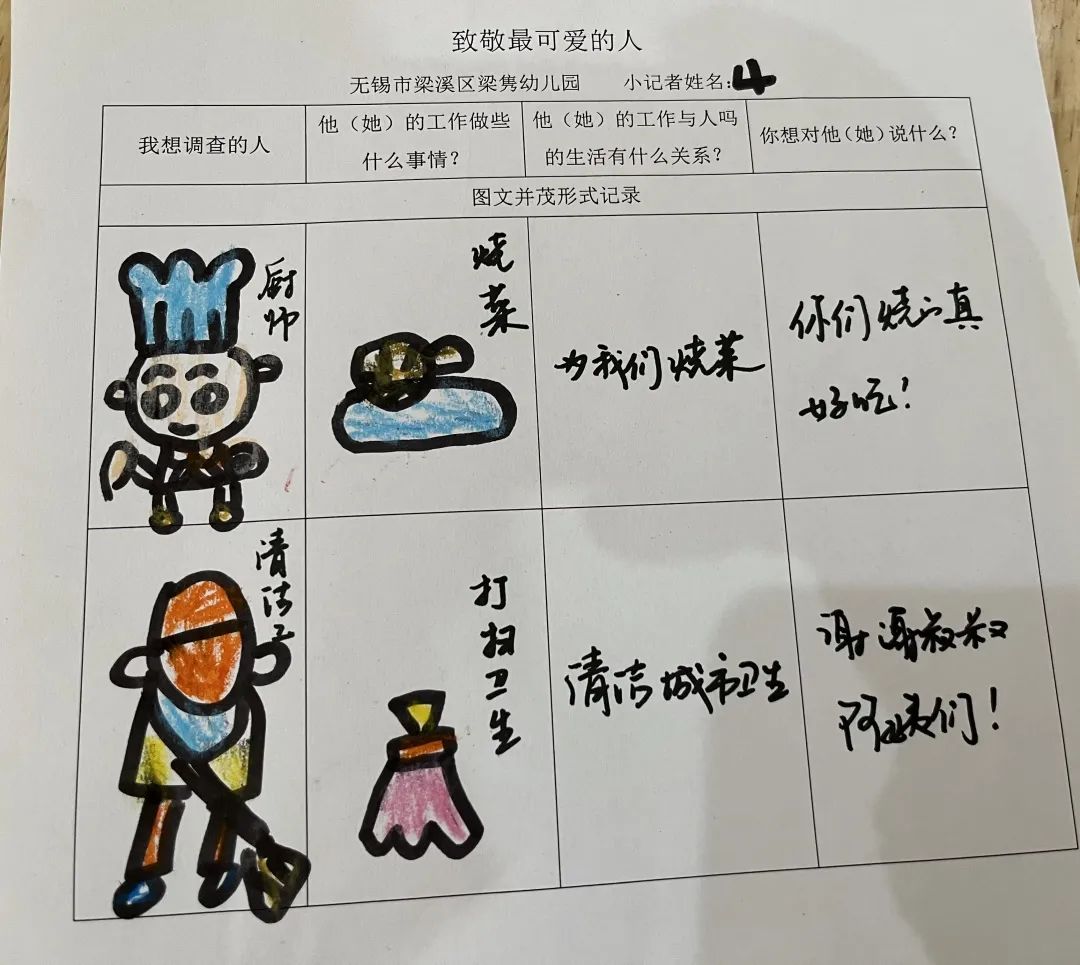 致敬最可爱的人
无锡市梁溪区梁隽幼儿园 小记者姓名:4
我想调查的人
他（她）的工作做些
什么事情？
他（她）的工作与人吗
的生活有什么关系？
你想对他（她）说什么？
图文并茂形式记录
厨师
烧菜
为我们烧菜
你们烧的真
好吃！
清洁工
打扫卫生
清洁城市卫生
谢谢叔叔
阿姨们！